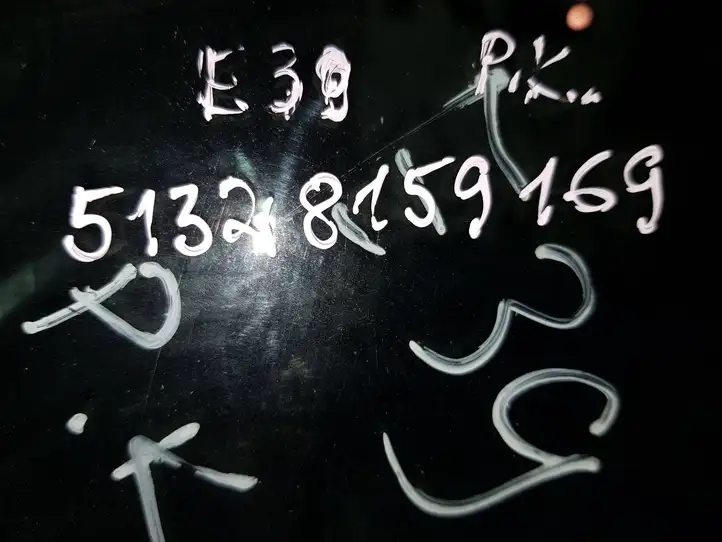 E39 P.K.
5132 8159169
P.K
39